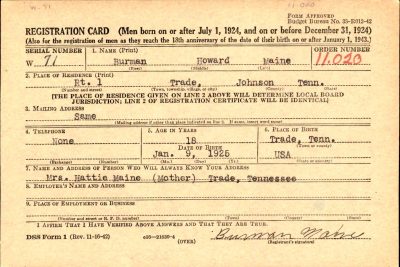 W-71
11-020
FORM APPROVED
Budget Bureau No. 33-R012-42
REGISTRATION CARD (Men born on or after July 1, 1924, and on or before December 31, 1924)
(Also for the registration of men as they reach the 18th anniversary of the date of their birth on or after January 1, 1943.)
SERIAL NUMBER
1. NAME (Print)
ORDER NUMBER
W 71
Burman Howard Maine
11,020
(First) (Middle) (Last)
2. PLACE OF RESIDENCE (Print)
Rt. 1 Trade, Johnson Tenn.
(Number and street) (Town, township, village, or city) (County) (State)
[THE PLACE OF RESIDENCE GIVEN ON LINE 2 ABOVE WILL DETERMINE LOCAL BOARD
JURISDICTION; LINE 2 OF REGISTRATION CERTIFICATE WILL BE IDENTICAL]
3. MAILING ADDRESS
Same
[Mailing address if other than place indicated on line 2. If same, insert word same]
4. TELEPHONE
5. AGE IN YEARS
6. PLACE OF BIRTH
None
18
Trade, Tenn.
DATE OF BIRTH
(Town or county)
Jan. 9, 1925
USA
(Exchange) (Number)
(Mo.) (Day) (Yr.)
(State or country)
7. NAME AND ADDRESS OF PERSON WHO WILL ALWAYS KNOW YOUR ADDRESS
Mrs. Hattie Maine (Mother) Trade, Tennessee
8. EMPLOYER'S NAME AND ADDRESS
9. PLACE OF EMPLOYMENT OR BUSINESS
(Number and street or R. F. D. number) (Town) (County) (State)
I AFFIRM THAT I HAVE VERIFIED ABOVE ANSWERS AND THAT THEY ARE TRUE.
DSS Form 1 (Rev. 11-16-42)
(OVER)
Burman Maine
(Registrant's signature)